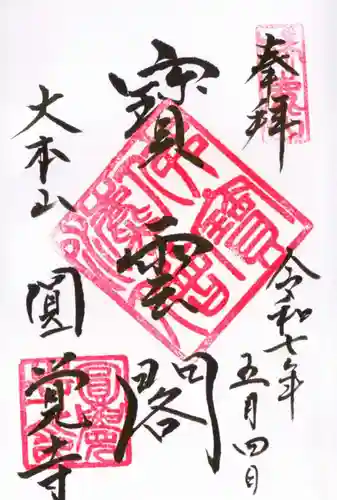 奉拝
令和七年
五月四日
寳雲閣
大本山
圓覚寺